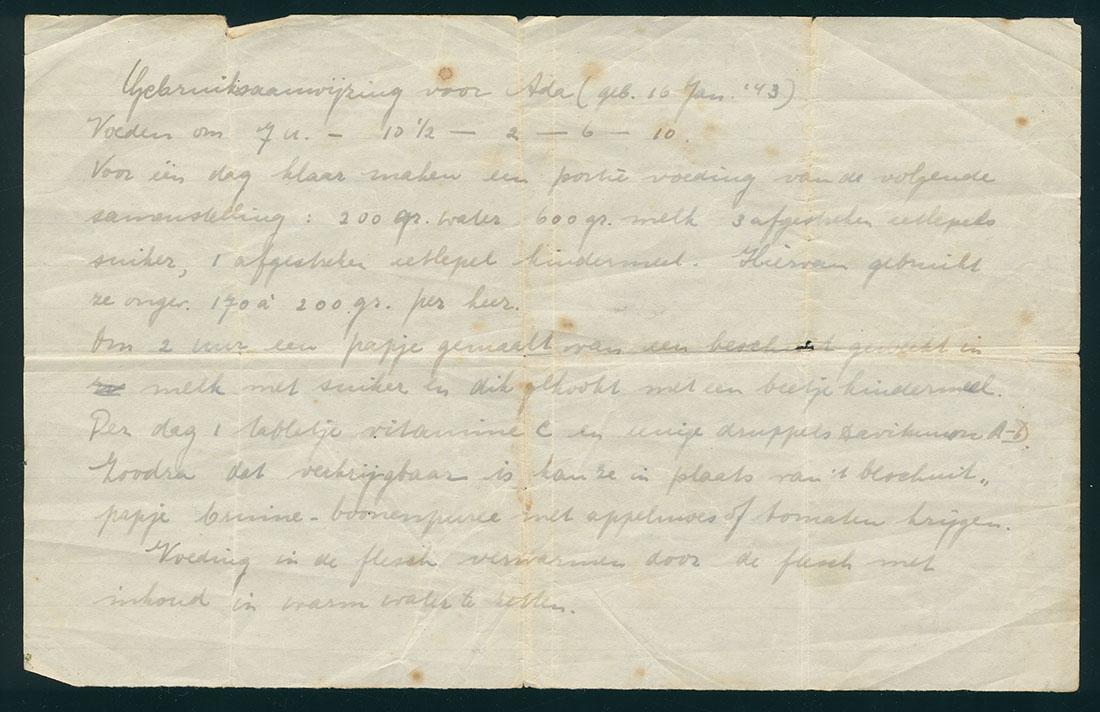 Gebruiksaanwijzing voor Ada (geb. 16 Jan. '43)
Voeden om 7 u. - 10 1/2 - 2 - 6 - 10.
Voor één dag klaar maken een portie voeding van de volgende
samenstelling: 200 gr. water 600 gr. melk 3 afgestreken eetlepels
suiker, 1 afgestreken eetlepel kindermeel. Hiervan gebruikt
ze ongev. 170 à 200 gr. per keer.
Om 2 uur een papje gemaakt van een beschuit geweekt in
melk met suiker en dik gekookt met een beetje kindermeel.
Per dag 1 tabletje vitamine C en enige druppels Davitamon A-D.
Zoodra dat verkrijgbaar is kan ze in plaats van 't beschuit„
papje bruine-boonenpuree met appelmoes of tomaten krijgen.
Voeding in de flesch verwarmen door de flesch met
inhoud in warm water te zetten.